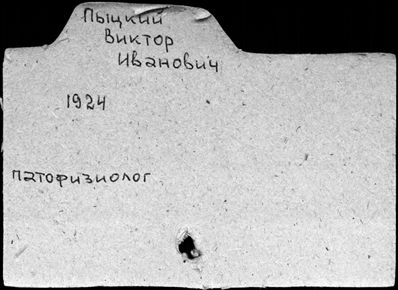 Пыцкий
Виктор
Иванович
1924
патофизиолог